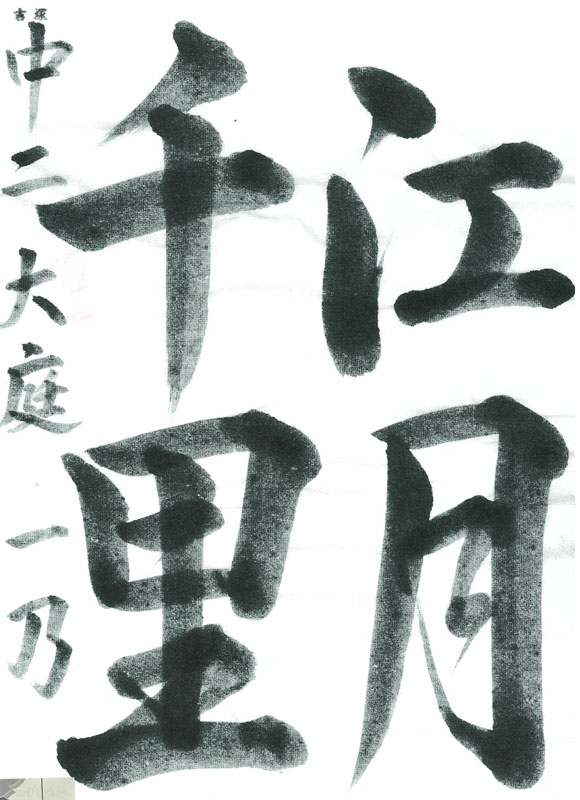 江月
千里
中二 大庭 一乃
吉塚